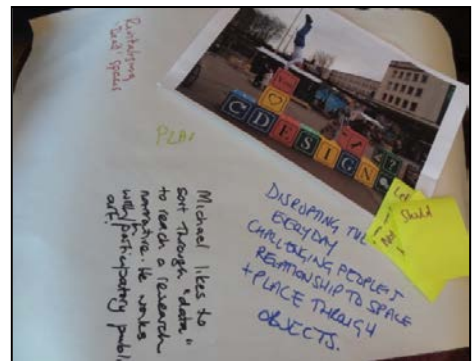 Revitalising
'Dead' spaces
PLAY
C DESIGN
Michael likes to
sort through "data"
to reach a research
narrative. He works
with/in participatory public
art.
DISRUPTING THE
EVERYDAY
CHALLENGING PEOPLE'S
RELATIONSHIP TO SPACE
+ PLACE THROUGH
OBJECTS.
Should